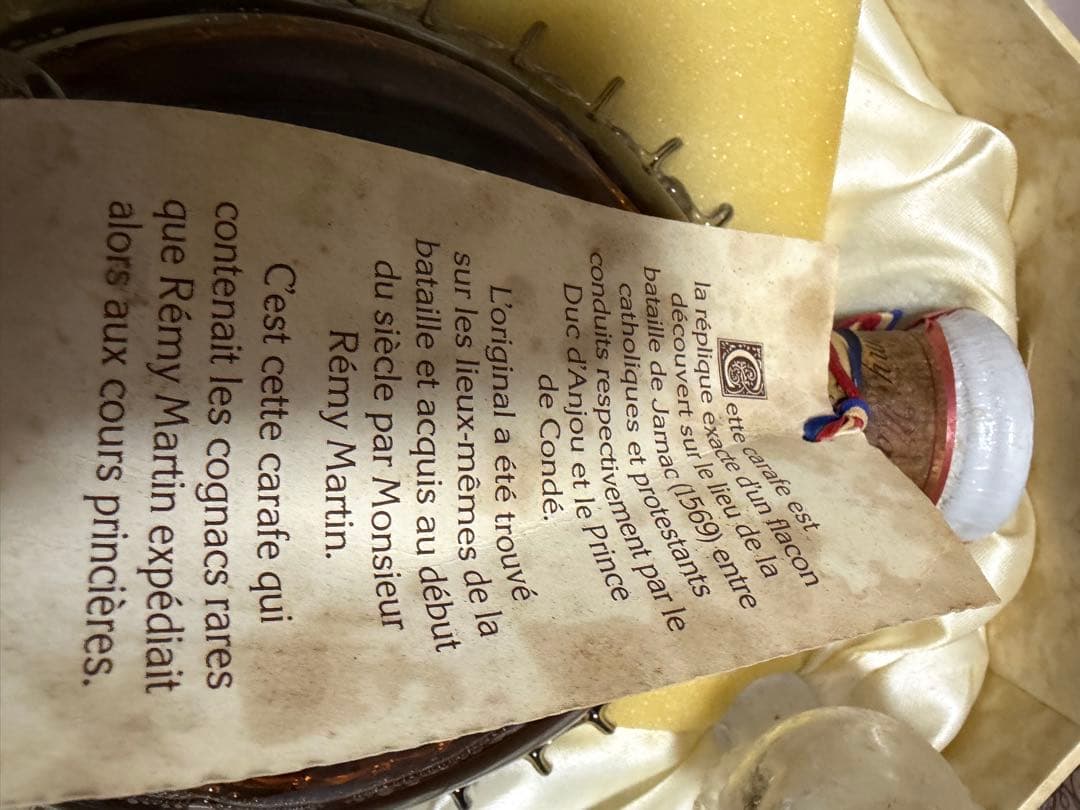 Cette carafe est
la réplique exacte d'un flacon
découvert sur le lieu de la
bataille de Jarnac (1569) entre
catholiques et protestants
conduits respectivement par le
Duc d'Anjou et le Prince
de Condé.
L'original a été trouvé
sur les lieux-mêmes de la
bataille et acquis au début
du siècle par Monsieur
Rémy Martin.
C'est cette carafe qui
contenait les cognacs rares
que Rémy Martin expédiait
alors aux cours princières.